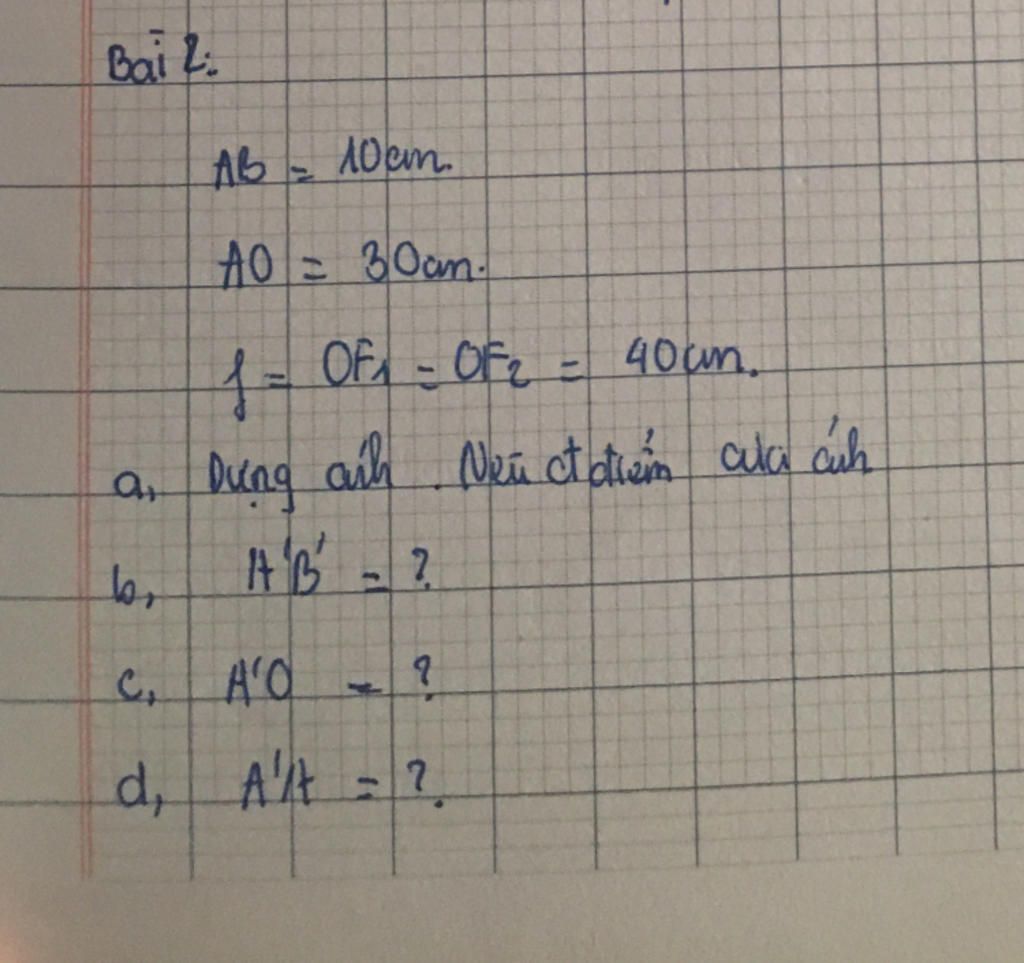 Bài 2:
AB = 10cm.
AO = 30cm.
f = OF1 = OF2 = 40cm.
a, Dựng ảnh. Nêu đ điểm của ảnh
b, A'B' = ?
c, A'O = ?
d, A'A = ?